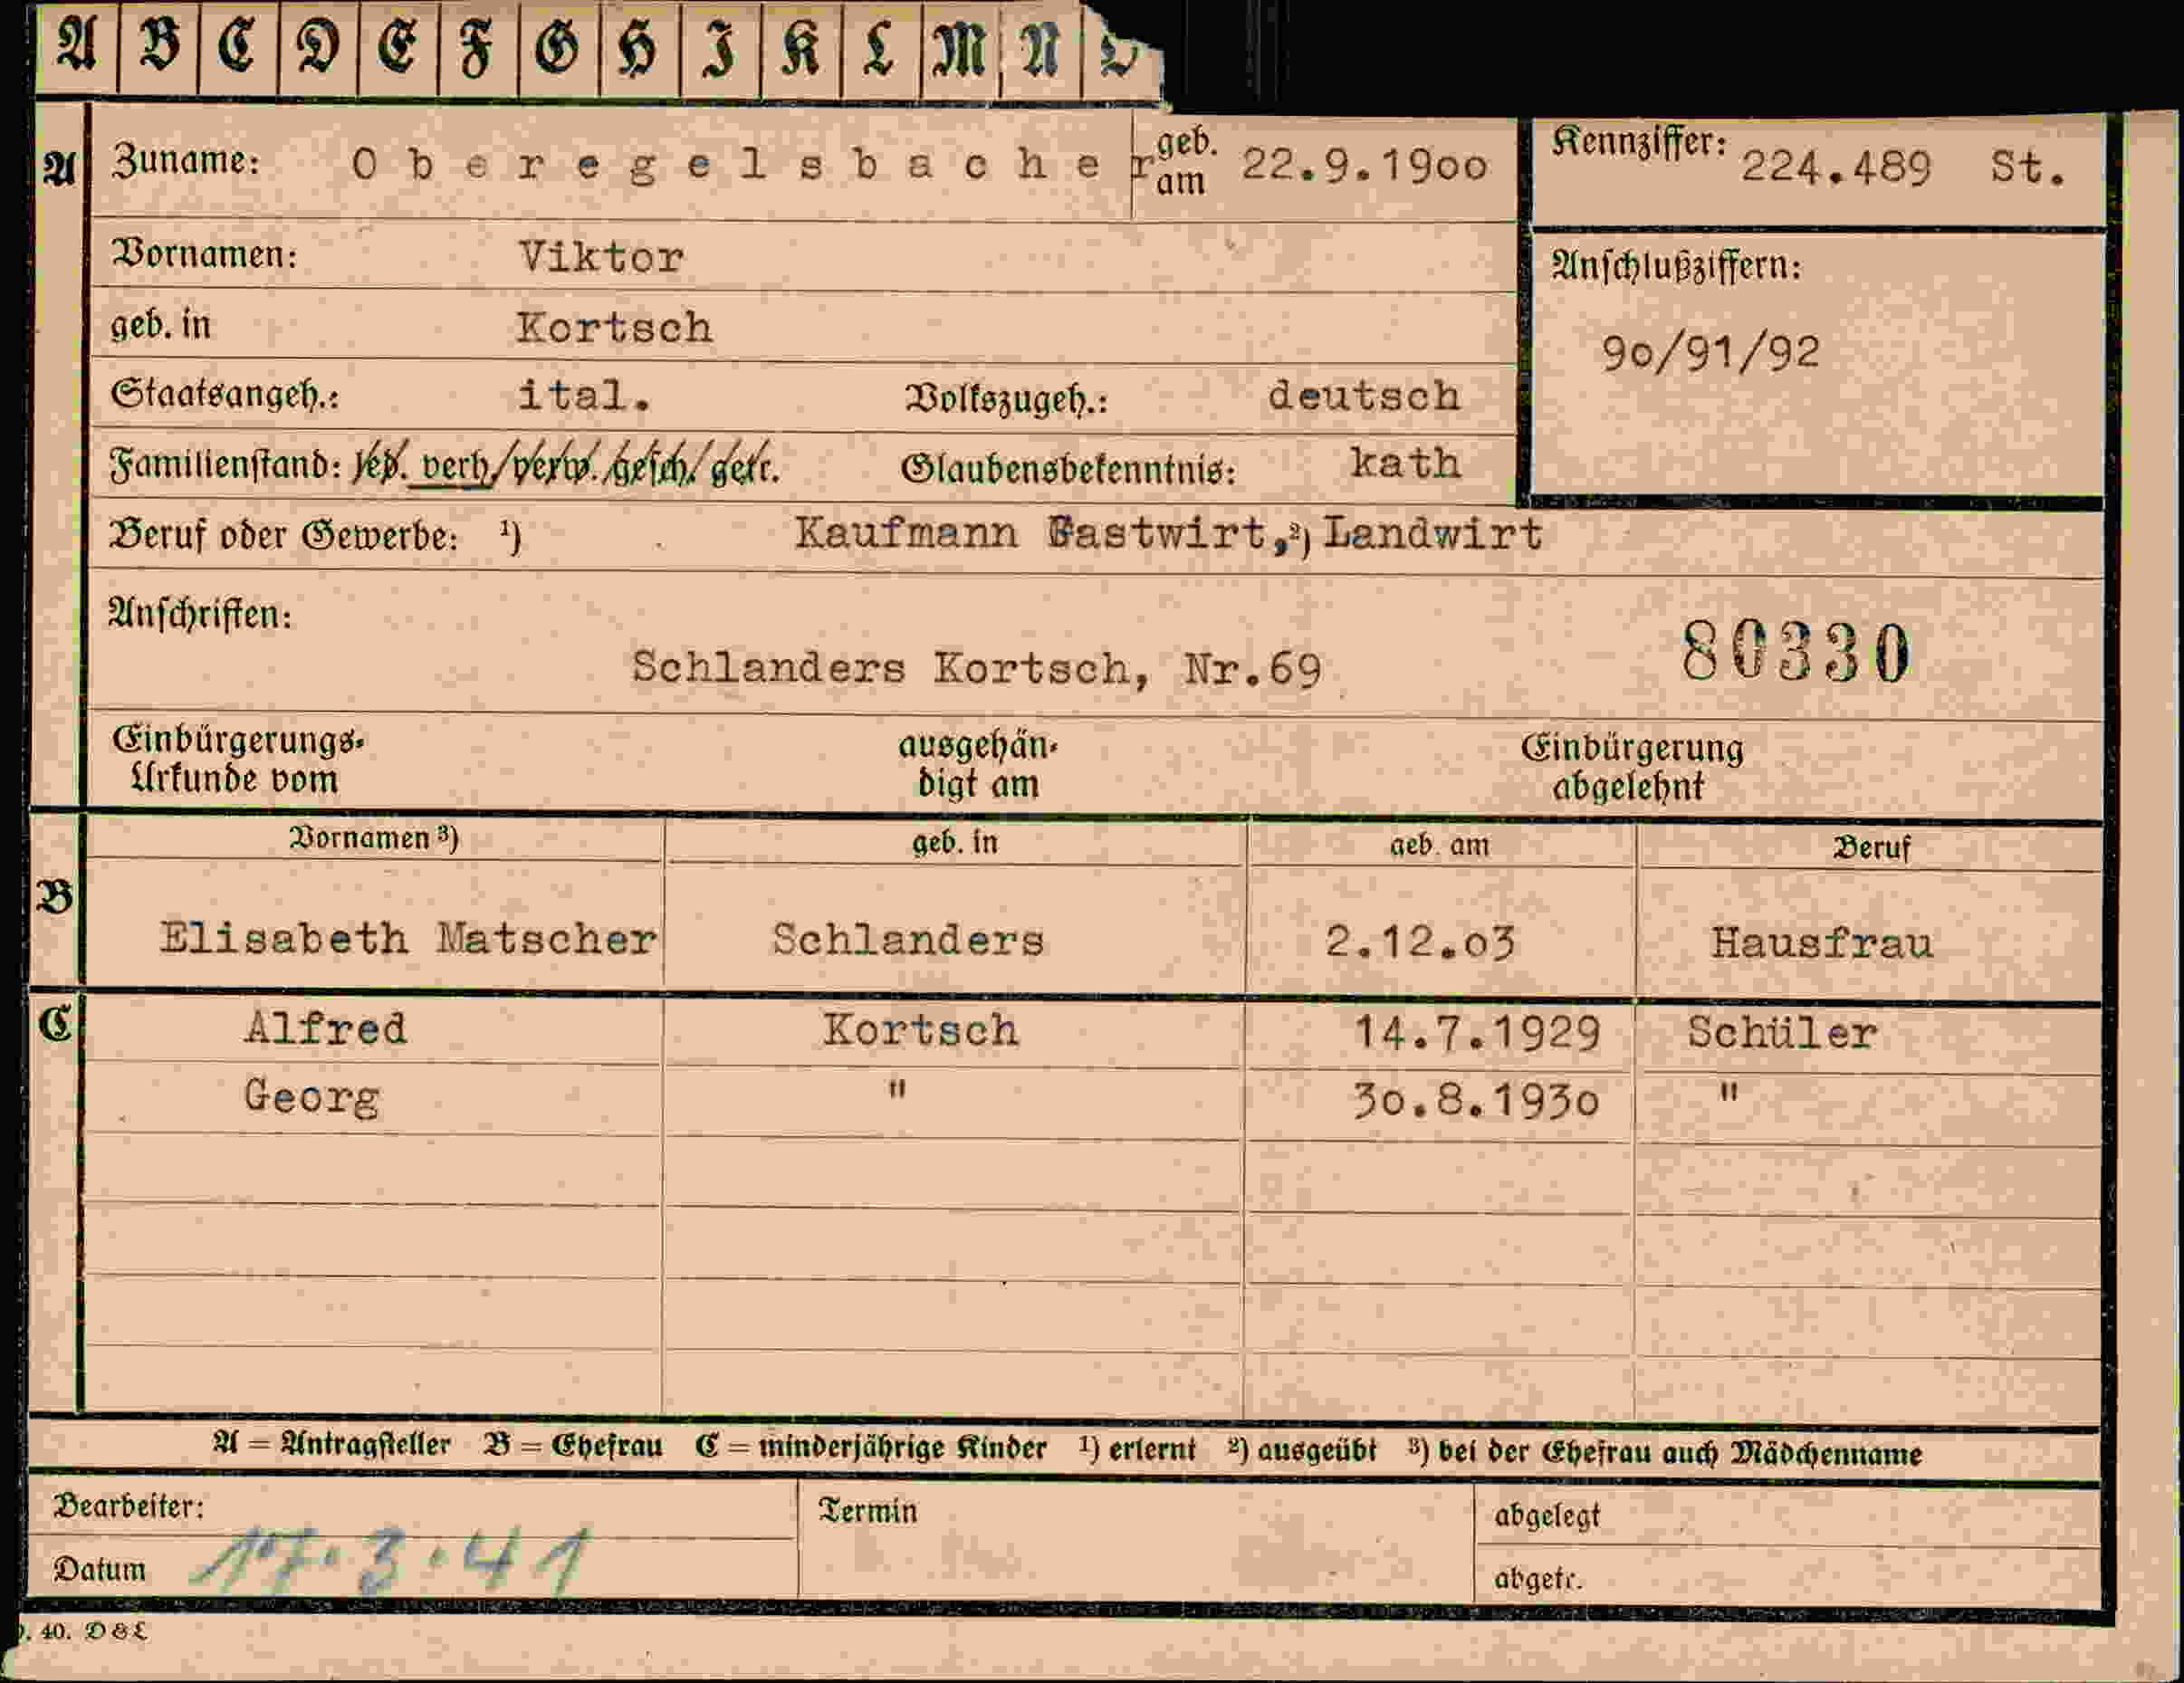 A B C D E F G H I K L M N O
A Zuname: Oberegelsbacher geb. am 22.9.1900 Kennziffer: 224.489 St.
Vornamen: Viktor Anschlußziffern:
geb. in Kortsch 90/91/92
Staatsangeh.: ital. Volkszugeh.: deutsch
Familienstand: led. verh/verw./gesch/getr. Glaubensbekenntnis: kath
Beruf oder Gewerbe: ¹) Kaufmann Gastwirt,²) Landwirt
Anschriften:
Schlanders Kortsch, Nr.69 80330
Einbürgerungs- ausgehän- Einbürgerung
Urkunde vom digt am abgelehnt
Vornamen ³) geb. in geb. am Beruf
B
Elisabeth Matscher Schlanders 2.12.03 Hausfrau
C Alfred Kortsch 14.7.1929 Schüler
Georg " 30.8.1930 "
A = Antragsteller B = Ehefrau C = minderjährige Kinder ¹) erlernt ²) ausgeübt ³) bei der Ehefrau auch Mädchenname
Bearbeiter: Termin abgelegt
Datum 17.3.41 abgetr.
40. D & L